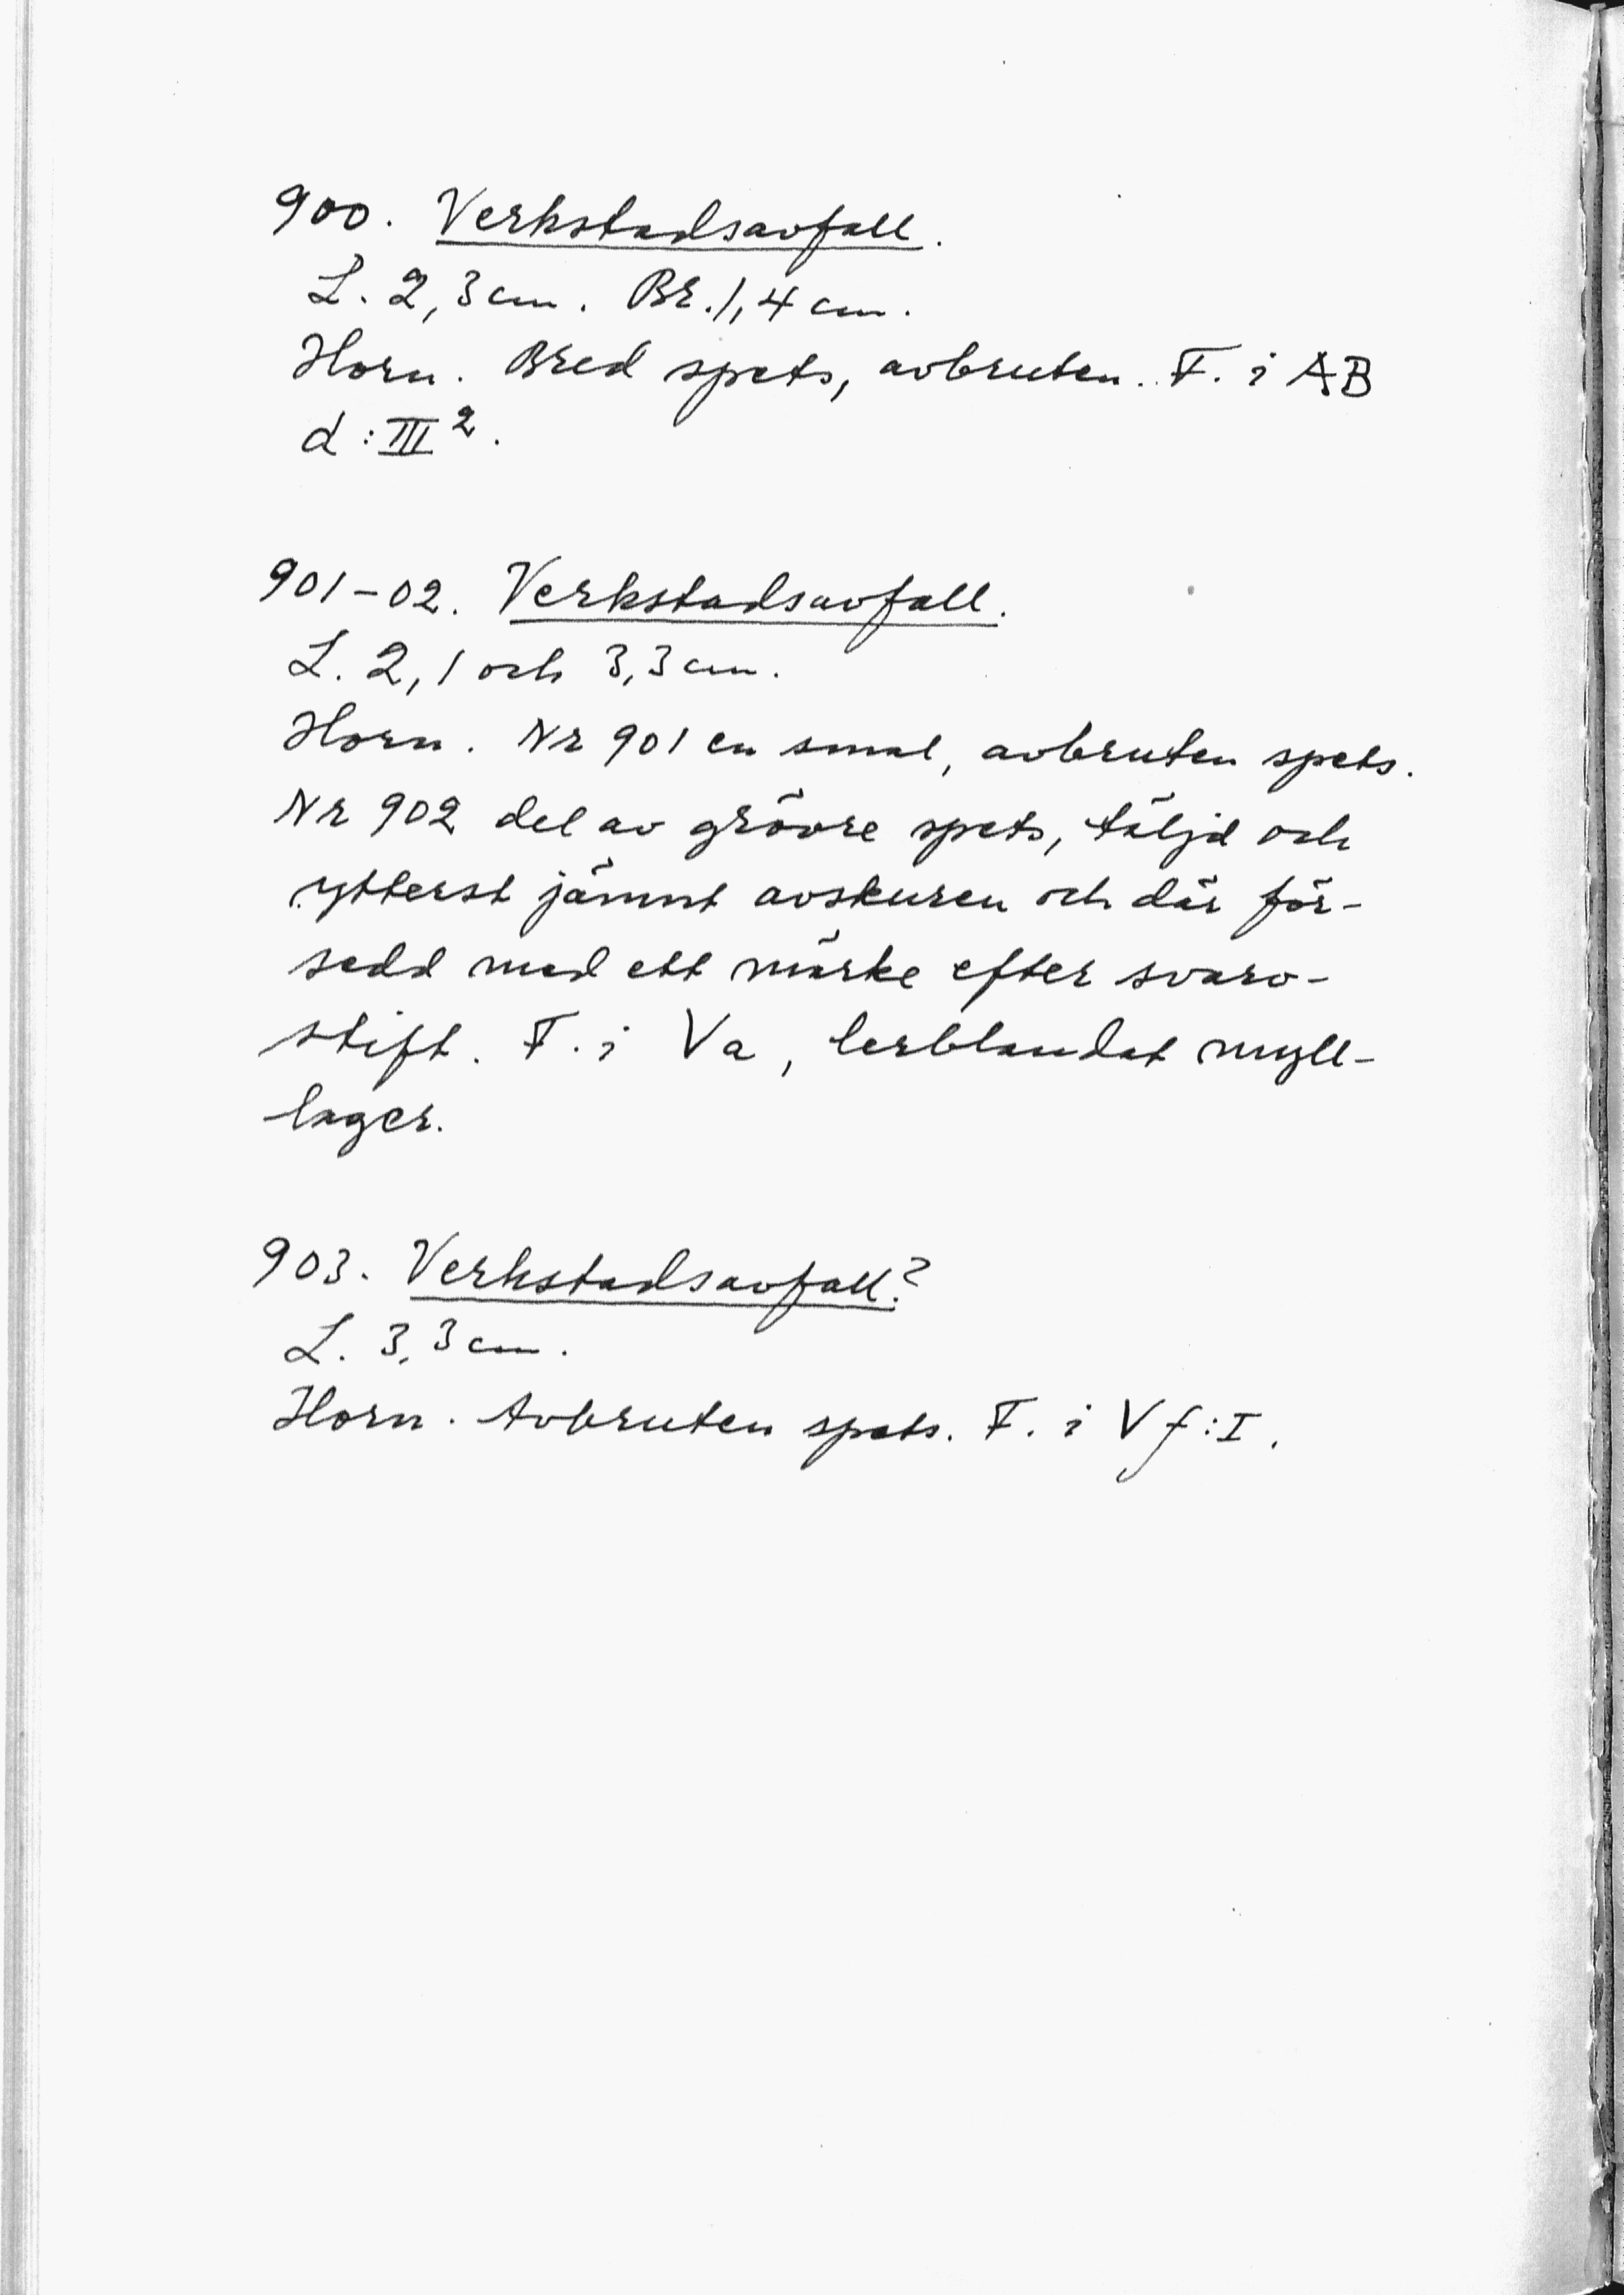 900. Verkstadsavfall.
L. 2,3 cm. Br. 1,4 cm.
Horn. Bred spets, avbruten. F. i AB
d:III².
901-02. Verkstadsavfall.
L. 2,1 och 3,3 cm.
Horn. Nr 901 en smal, avbruten spets.
Nr 902 del av grövre spets, täljd och
ytterst jämnt avskuren och där för-
sedd med ett märke efter svarv-
stift. F. i Va, lerblandat myll-
lager.
903. Verkstadsavfall?
L. 3,3 cm.
Horn. Avbruten spets. F. i Vf:I.